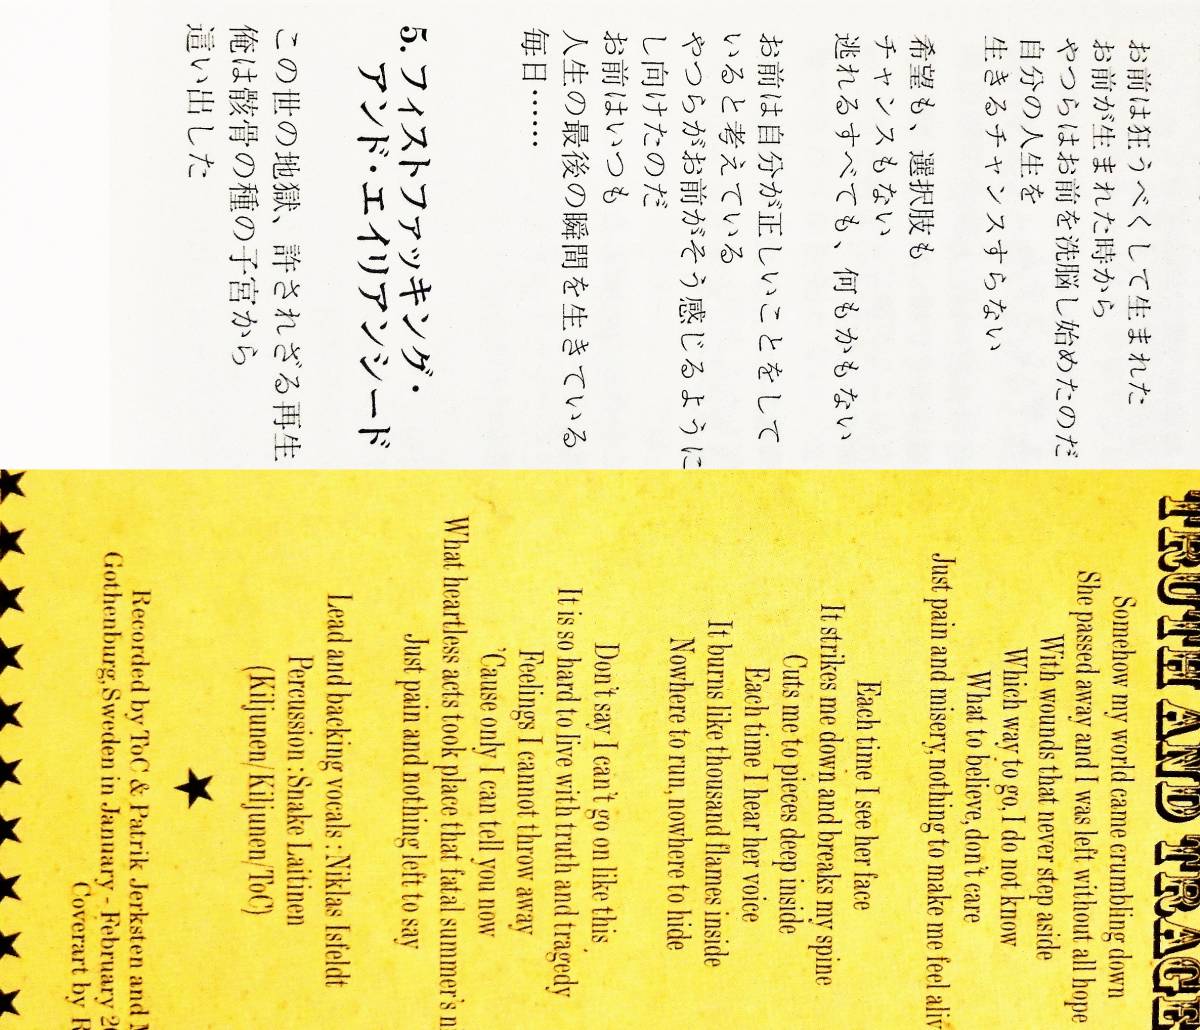 お前は狂うべくして生まれた
お前が生まれた時から
やつらはお前を洗脳し始めたのだ
自分の人生を
生きるチャンスすらない
希望も、選択肢も
チャンスもない
逃れるすべても、何もかもない
お前は自分が正しいことをして
いると考えている
やつらがお前がそう感じるように
し向けたのだ
お前はいつも
人生の最後の瞬間を生きている
毎日……
5. フィストファッキング・
アンド・エイリアンシード
この世の地獄、許されざる再生
俺は骸骨の種の子宮から
這い出した
TRUTH AND TRAGE
Somehow my world came crumbling down
She passed away and I was left without all hope
With wounds that never step aside
Which way to go, I do not know
What to believe, don't care
Just pain and misery, nothing to make me feel aliv
Each time I see her face
It strikes me down and breaks my spine
Cuts me to pieces deep inside
Each time I hear her voice
It burns like thousand flames inside
Nowhere to run, nowhere to hide
Don't say I can't go on like this
It is so hard to live with truth and tragedy
Feelings I cannot throw away
'Cause only I can tell you now
What heartless acts took place that fatal summer's n
Just pain and nothing left to say
Lead and backing vocals : Niklas Isfeldt
Percussion : Snake Laitinen
(Kiljunen/Kiljunen/ToC)
Recorded by ToC & Patrik Jerksten and M
Gothenburg, Sweden in January - February 20
Coverart by R